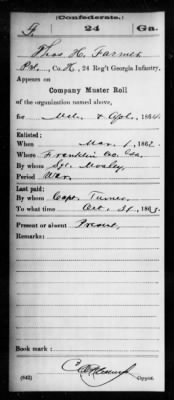 (Confederate.)
F 24 Ga.
Thos H. Farmer
Pvt., Co. H, 24 Reg't Georgia Infantry.
Appears on
Company Muster Roll
of the organization named above,
for Mch. & Apl., 1864.
Enlisted:
When Mar. 1, 1862.
Where Franklin Co. Ga.
By whom Sgt. Mosley
Period War
Last paid:
By whom Capt. Turner
To what time Oct. 31, 1863.
Present or absent Present
Remarks:
Book mark:
(642)
Copyist.